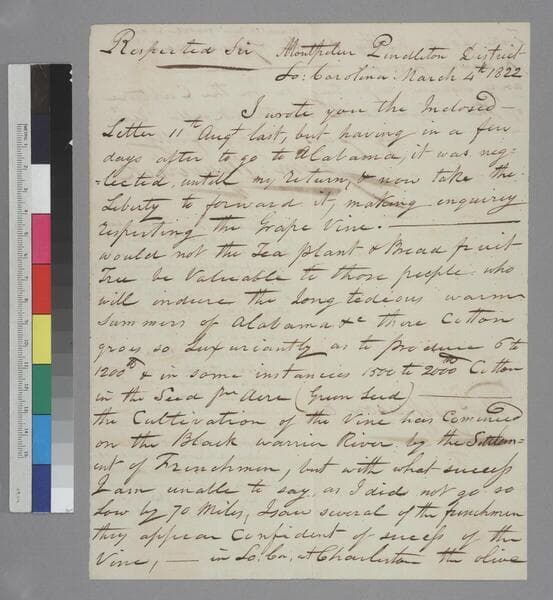 Respected Sir Montpelier Pendleton District
So: Carolina: March 4th 1822
I wrote you the Inclosed
Letter 11th Augt last, but having in a few
days after to go to Alabama, it was neg-
-lected, untill my return, & now take the
Liberty to forward it, making enquirey
respecting the Grape Vine. —
would not the Tea plant & Bread fruit
Tree be Valueable to those people who
will endure the long tedeous warm
Summers of Alabama &c there Cotton
grows so Luxuriantly as to produce 6 to
1200lb & in some instances 1500 to 2000lb Cotton
in the Seed pr Acre (Green Seed) —
the Cultivation of the Vine has Comenced
on the Black warrior River by the Settlem=
ent of Frenchmen, but with what success
I am unable to say, as I did not go so
Low by 70 Miles, I saw several of the frenchmen
they appear Confident of success of the
Vine, — in So. Ca. at Charleston the olive